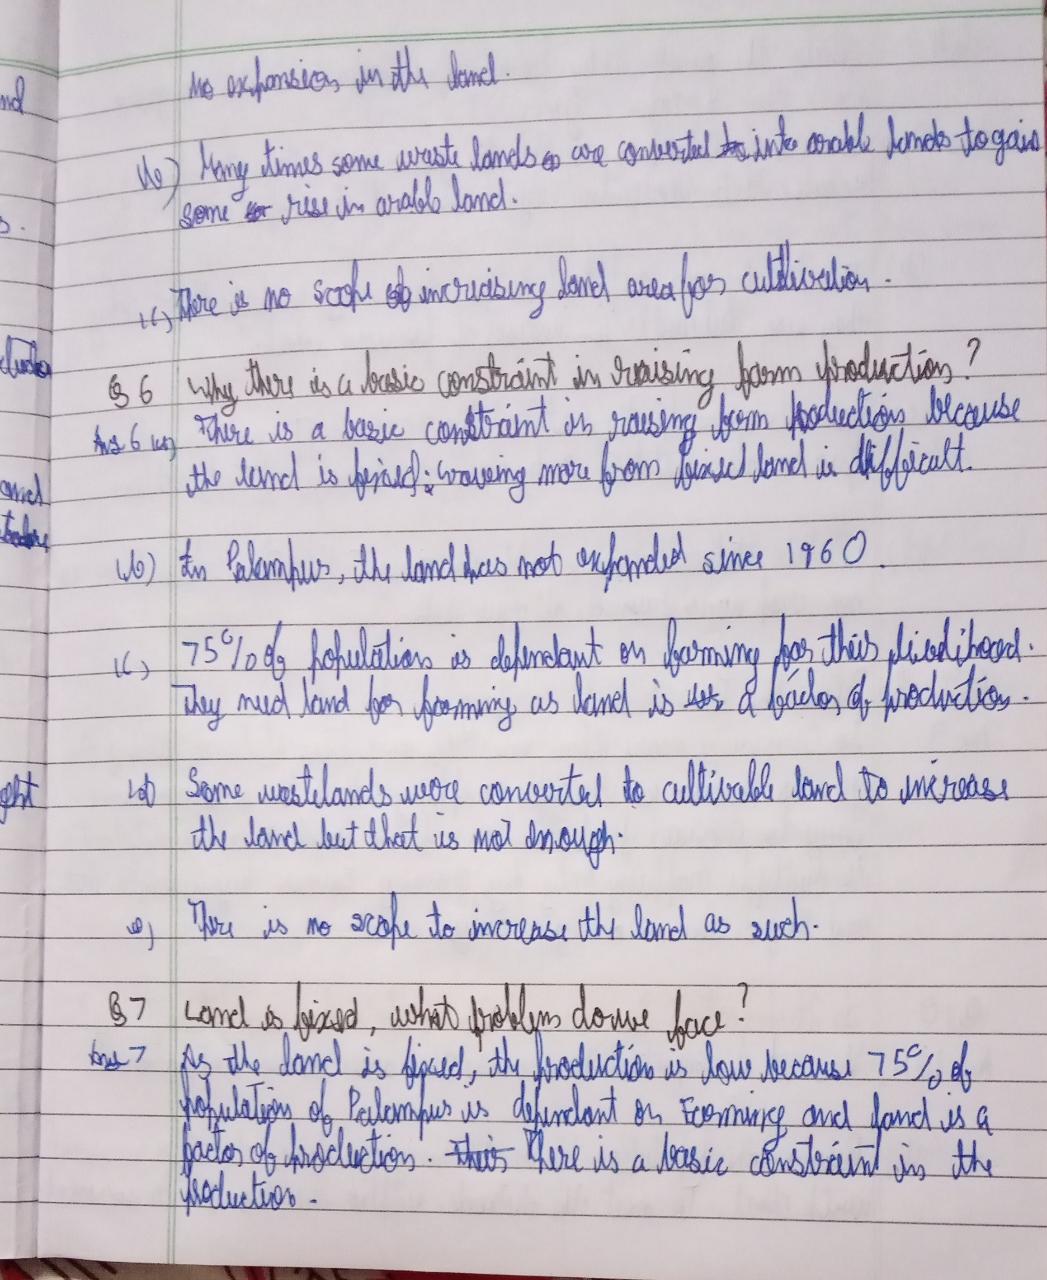 no expansion in the land.
(b) Many times some waste lands are converted into arable lands to gain
some rise in arable land.
(c) There is no scope of increasing land area for cultivation.
Q 6 Why there is a basic constraint in raising farm production?
Ans 6 (a) There is a basic constraint in raising farm production because
the land is fixed; growing more from fixed land is difficult.
(b) In Palampur, the land has not expanded since 1960.
(c) 75% of population is dependant on farming for their livelihood.
They need land for farming as land is a factor of production.
(d) Some wastelands were converted to cultivable land to increase
the land but that is not enough.
e) There is no scope to increase the land as such.
Q 7 Land is fixed, what problem do we face?
Ans 7 As the land is fixed, the production is low because 75% of
population of Palampur is dependant on Farming and land is a
factor of production. There is a basic constraint in the
production.